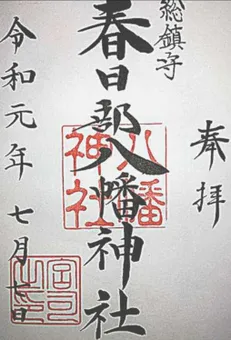 奉拝
総鎮守
春日部八幡神社
八幡
神社
令和元年 七月七日
宮司
之印